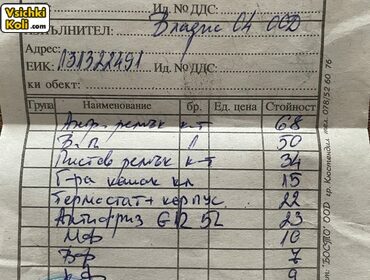 Vsichki
Koli.com
Ид. №ДДС:
ИЗПЪЛНИТЕЛ: Владис 04 ООД
Адрес:
ЕИК: 131322491 Ид. №ДДС:
ки обект:
Група Наименование бр. Ед. цена Стойност
Анг. ремък к-т 68
В.П. 1 50
Пистов ремък к-т 34
Гра капак кл 15
Термостат+ корпус 22
Антифриз G12 5L 23
МФ 10
ВФ 7
КФ 9
"БОСТО" ООД гр. Кюстендил тел. 078/52 60 76